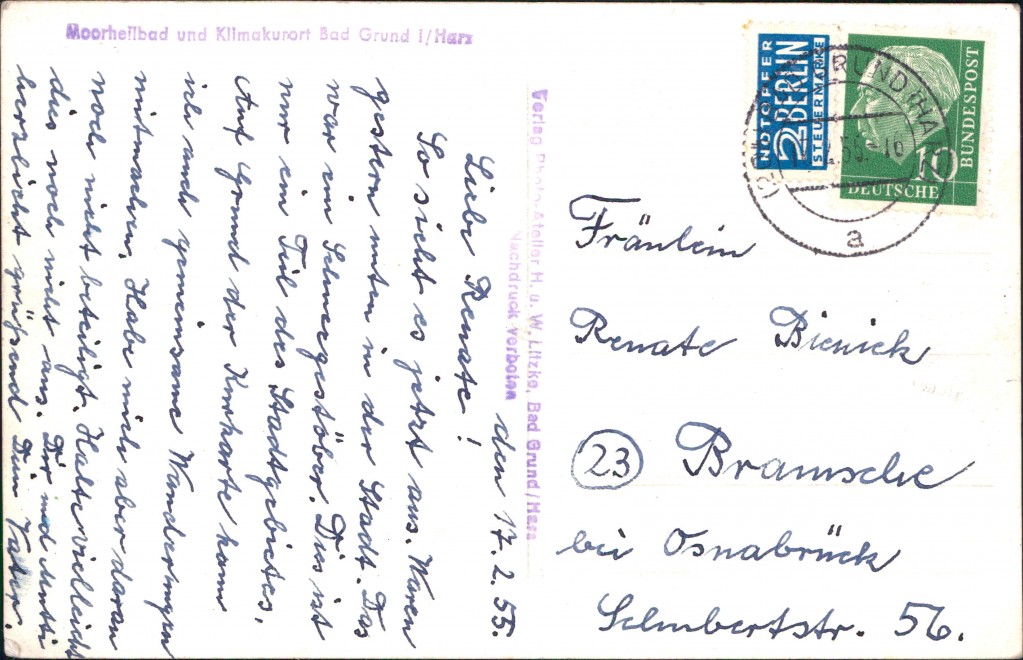 Moorheilbad und Klimakurort Bad Grund i/Harz
den 17.2.55.
Liebe Renate!
So sieht es jetzt aus. Waren
gestern unten in der Stadt. Das
war ein Schneegestöber. Dies ist
nur ein Teil des Stadtgebietes.
Auf Grund der Kurkarte kann
ich auch gemeinsame Wanderungen
mitmachen. Habe mich aber daran
noch nicht beteiligt. Halte vielleicht
dies noch nicht aus. Dir und Mutti
herzlichst grüßend Dein Vater.
Verlag Photo-Atelier H. u. W. Litzke, Bad Grund/Harz
Nachdruck verboten
NOTOPFER
2 BERLIN
STEUERMARKE
10
DEUTSCHE
BUNDESPOST
GRUND (HARZ)
55.-16
a
Fräulein
Renate Bieniek
(23) Bramsche
bei Osnabrück
Schubertstr. 56.